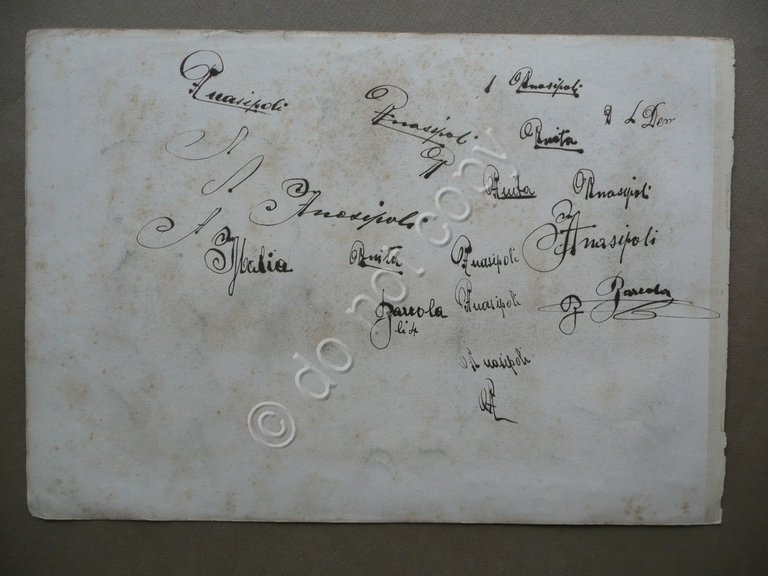 Anasipoli
Anasipoli
1 Anasipoli
A
Anita
Anita
Anasipoli
Anasipoli
Anasipoli
Italia
Anita
Anasipoli
Barcola
Anasipoli
Barcola
li 4
Anasipoli
A
© do not copy